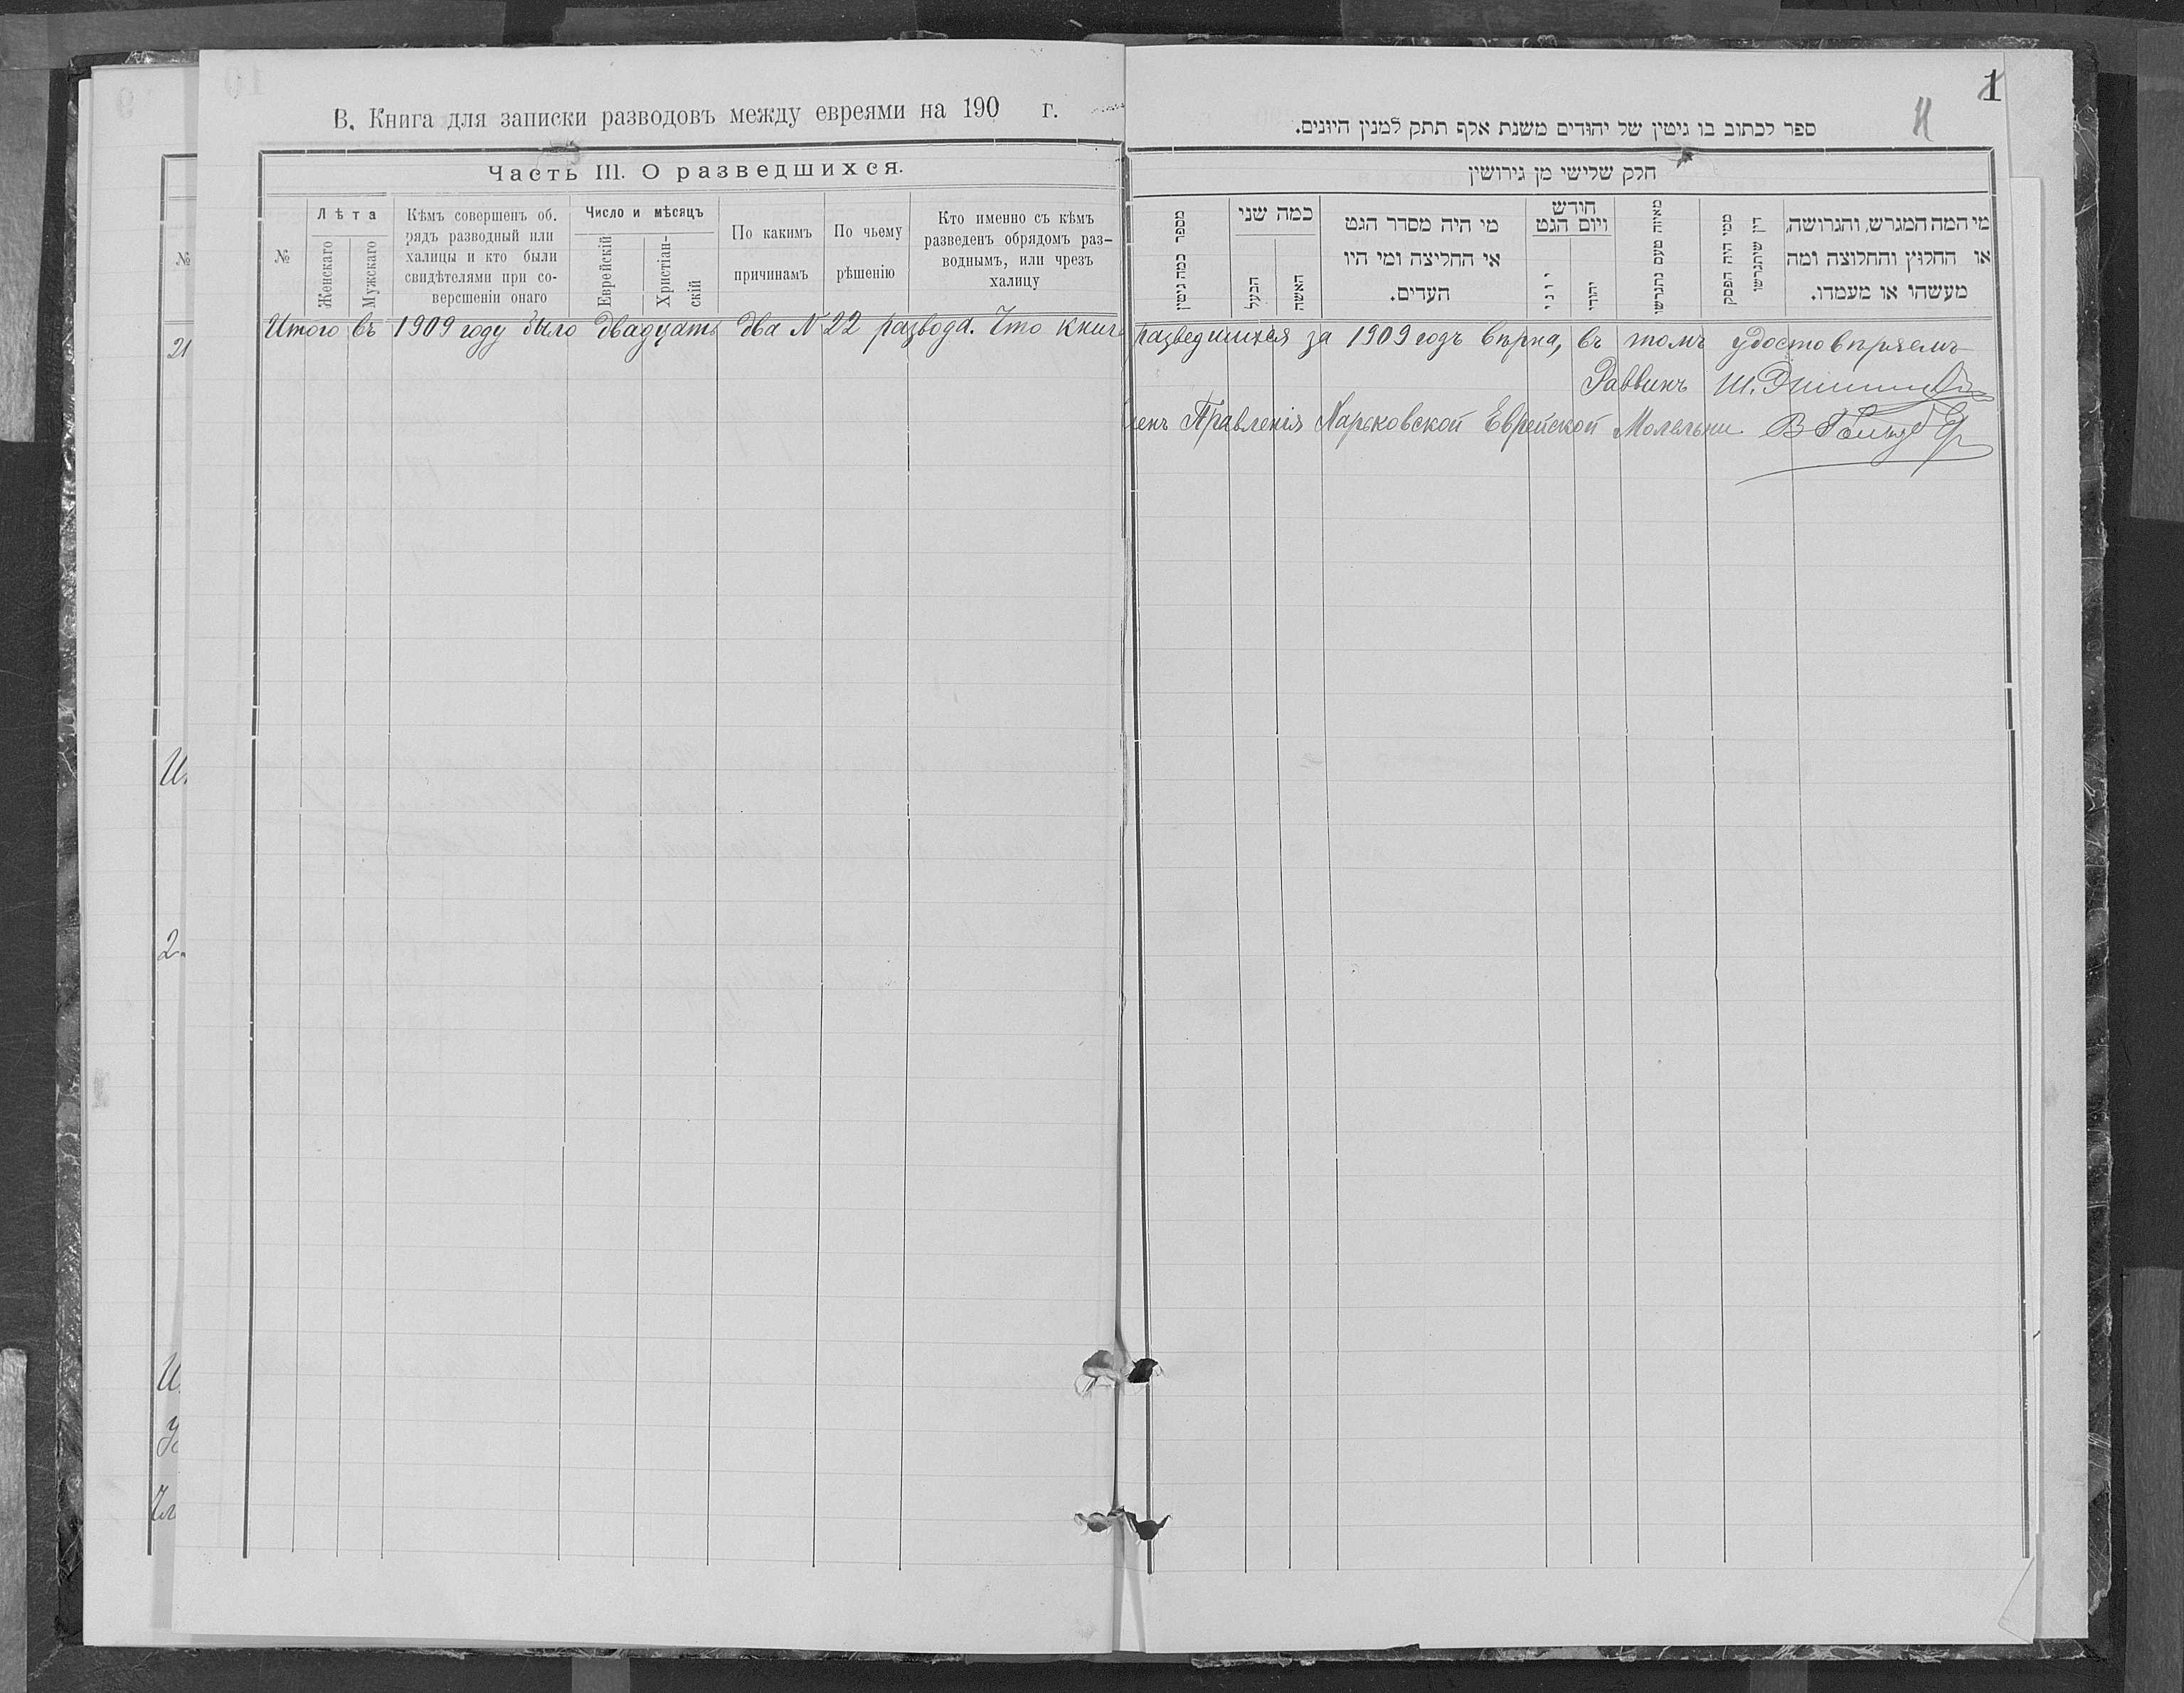 В. Книга для записки разводовъ между евреями на 190 г.
Часть III. О разведшихся.
№
Лѣта
Женскаго
Мужскаго
Кѣмъ совершенъ об.
рядъ разводный или
халицы и кто были
свидѣтелями при со-
версшеніи онаго
Число и мѣсяцъ
Еврейскій
Христіан-
скій
По какимъ
причинамъ
По чьему
рѣшенію
Кто именно съ кѣмъ
разведенъ обрядомъ раз-
воднымъ, или чрезъ
халицу
Итого въ 1909 году было двадцать два № 22 развода. Что книга
№
21
1
ספר לכתוב בו גיטין של יהודים משנת אלף תתק למנין היונים.
חלק שלישי מן גירושין
מספר כמה גיטין
כמה שני
הבעל
האשה
מי היה מסדר הגט
אי החליצה ומי היו
העדים.
חודש
ויום הגט
יוני
יהודי
מאיזה טעם נתגרשו
ממי היה הפסק
דין שיתגרשו
מי המה המגרש, והגרושה,
או החלוץ והחלוצה ומה
מעשהו או מעמדו.
разведшихся за 1909 годъ вѣрна, въ томъ удостовѣряемъ
Раввинъ Ш.
Правленія Харьковской Еврейской Молельни В